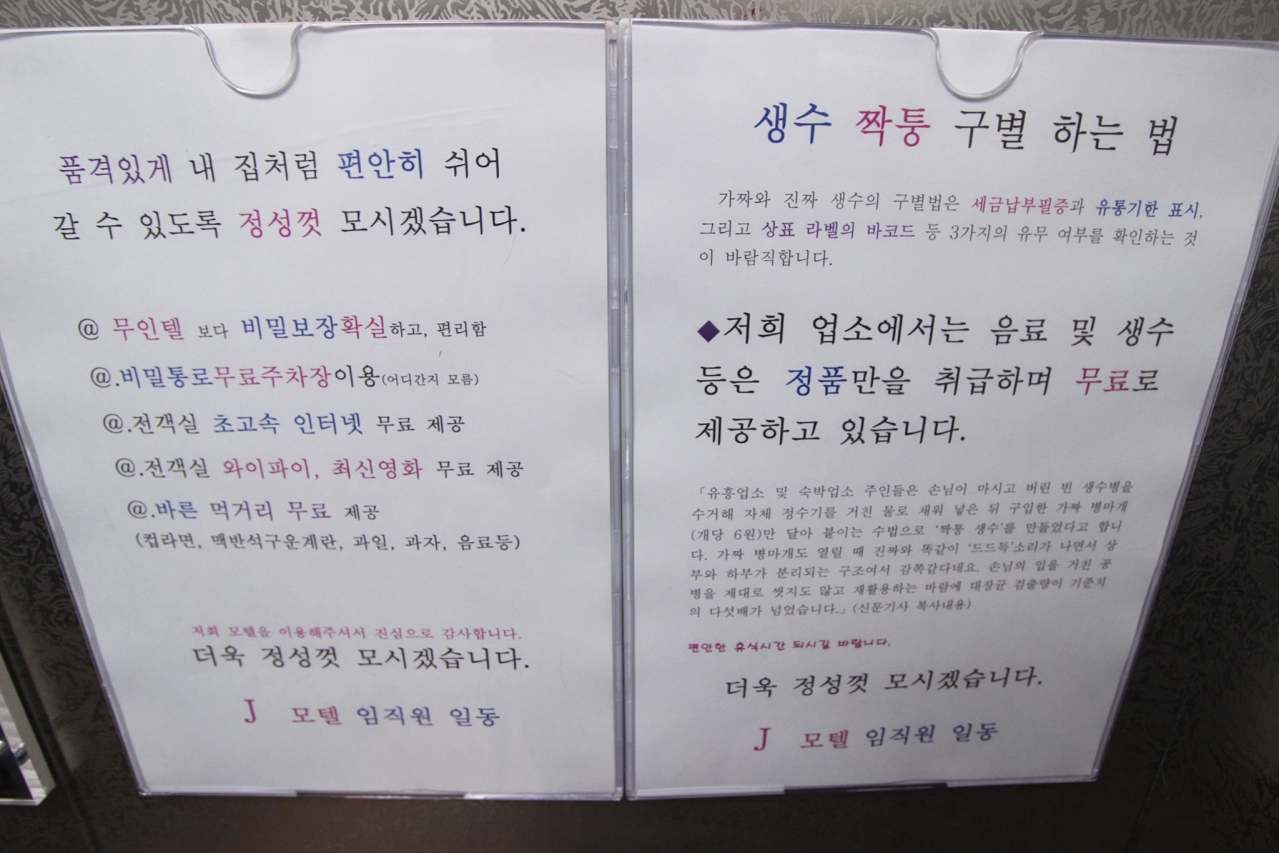 품격있게 내 집처럼 편안히 쉬어
갈 수 있도록 정성껏 모시겠습니다.
@ 무인텔 보다 비밀보장확실하고, 편리함
@.비밀통로무료주차장이용(어디간지 모름)
@.전객실 초고속 인터넷 무료 제공
@.전객실 와이파이, 최신영화 무료 제공
@.바른 먹거리 무료 제공
(컵라면, 맥반석구운계란, 과일, 과자, 음료등)
저희 모텔을 이용해주셔서 진심으로 감사합니다.
더욱 정성껏 모시겠습니다.
J 모텔 임직원 일동
생수 짝퉁 구별 하는 법
가짜와 진짜 생수의 구별법은 세금납부필증과 유통기한 표시,
그리고 상표 라벨의 바코드 등 3가지의 유무 여부를 확인하는 것
이 바람직합니다.
◆저희 업소에서는 음료 및 생수
등은 정품만을 취급하며 무료로
제공하고 있습니다.
「유흥업소 및 숙박업소 주인들은 손님이 마시고 버린 빈 생수병을
수거해 자체 정수기를 거친 물로 채워 넣은 뒤 구입한 가짜 병마개
(개당 6원)만 달아 붙이는 수법으로 '짝퉁 생수'를 만들었다고 합니
다. 가짜 병마개도 열릴 때 진짜와 똑같이 '드드득'소리가 나면서 상
부와 하부가 분리되는 구조여서 감쪽같다네요. 손님의 입을 거친 공
병을 제대로 씻지도 않고 재활용하는 바람에 대장균 검출량이 기준치
의 다섯배가 넘었습니다.」(신문기사 복사내용)
편안한 휴식시간 되시길 바랍니다.
더욱 정성껏 모시겠습니다.
J 모텔 임직원 일동